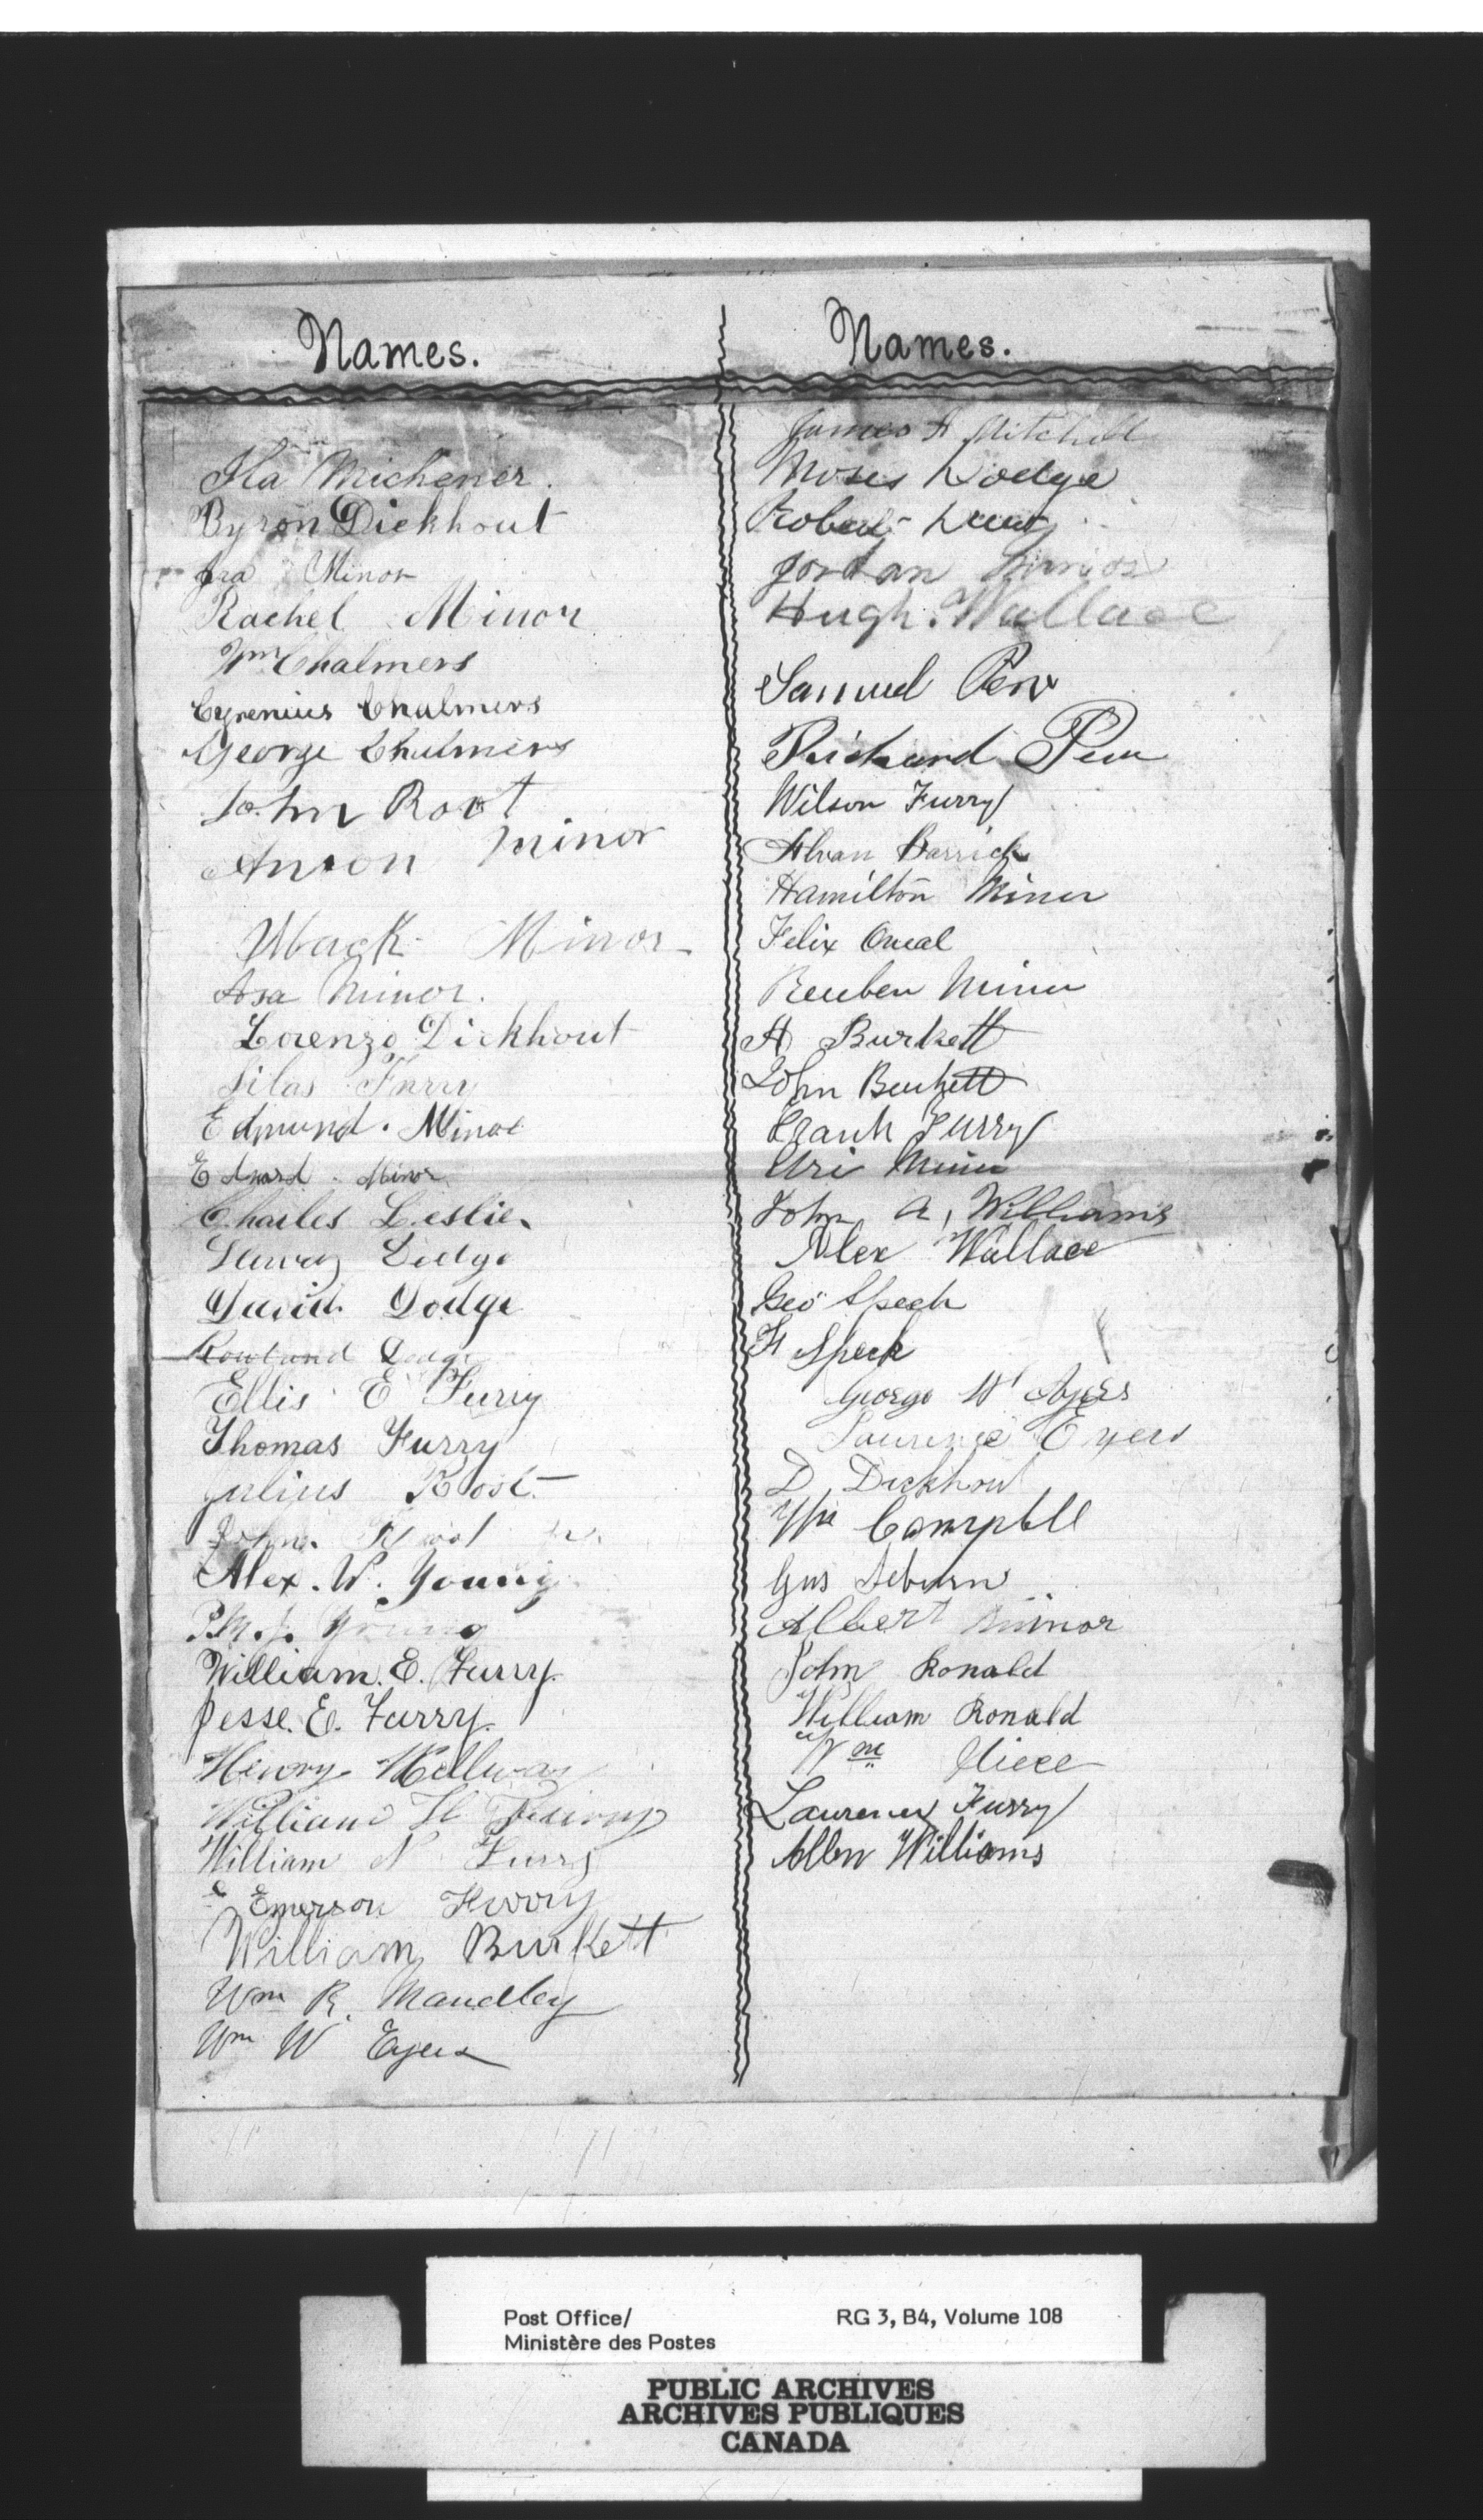 Names.
Ila Michener.
Byron Dickhout
Ira Minor
Rachel Minor
Wm Chalmers
Cyrenius Chalmers
George Chalmers
John Root
Anson Minor
Mack Minor
Asa Minor.
Lorenzo Dickhout
Silas Furry
Edmund. Minor
Edward. Minor
Charles Leslie.
Dodge
David. Dodge
Rowland Dodge
Ellis E Furry
Thomas Furry
Julius Root
John. Root
Alex. W. Young
Young
William. E. Furry.
Jesse. E. Furry.
Henry
William H
William N Furry
Emerson Furry
William Burkett
Wm R. Maudley
Wm W Eyers
Names.
James A Mitchell
Moses Dodge
Robert
Jordan Minor
Hugh. Wallace
Samuel Pew
Richard Pew
Wilson Furry
Alvan Barrick
Hamilton Minor
Felix Oneal
Reuben Minor
A Burkett
John Burkett
Frank Furry
Uri Minor
John A, Williams
Alex Wallace
Geo Speck
F Speck
George W Ayers
Laurence Eyers
D. Dickhout
Wm Campbll
Gus Seburn
Albert Minor
John Ronald
William Ronald
Wm
Laurence Furry
Allen Williams
Post Office/ RG 3, B4, Volume 108
Ministère des Postes
PUBLIC ARCHIVES
ARCHIVES PUBLIQUES
CANADA